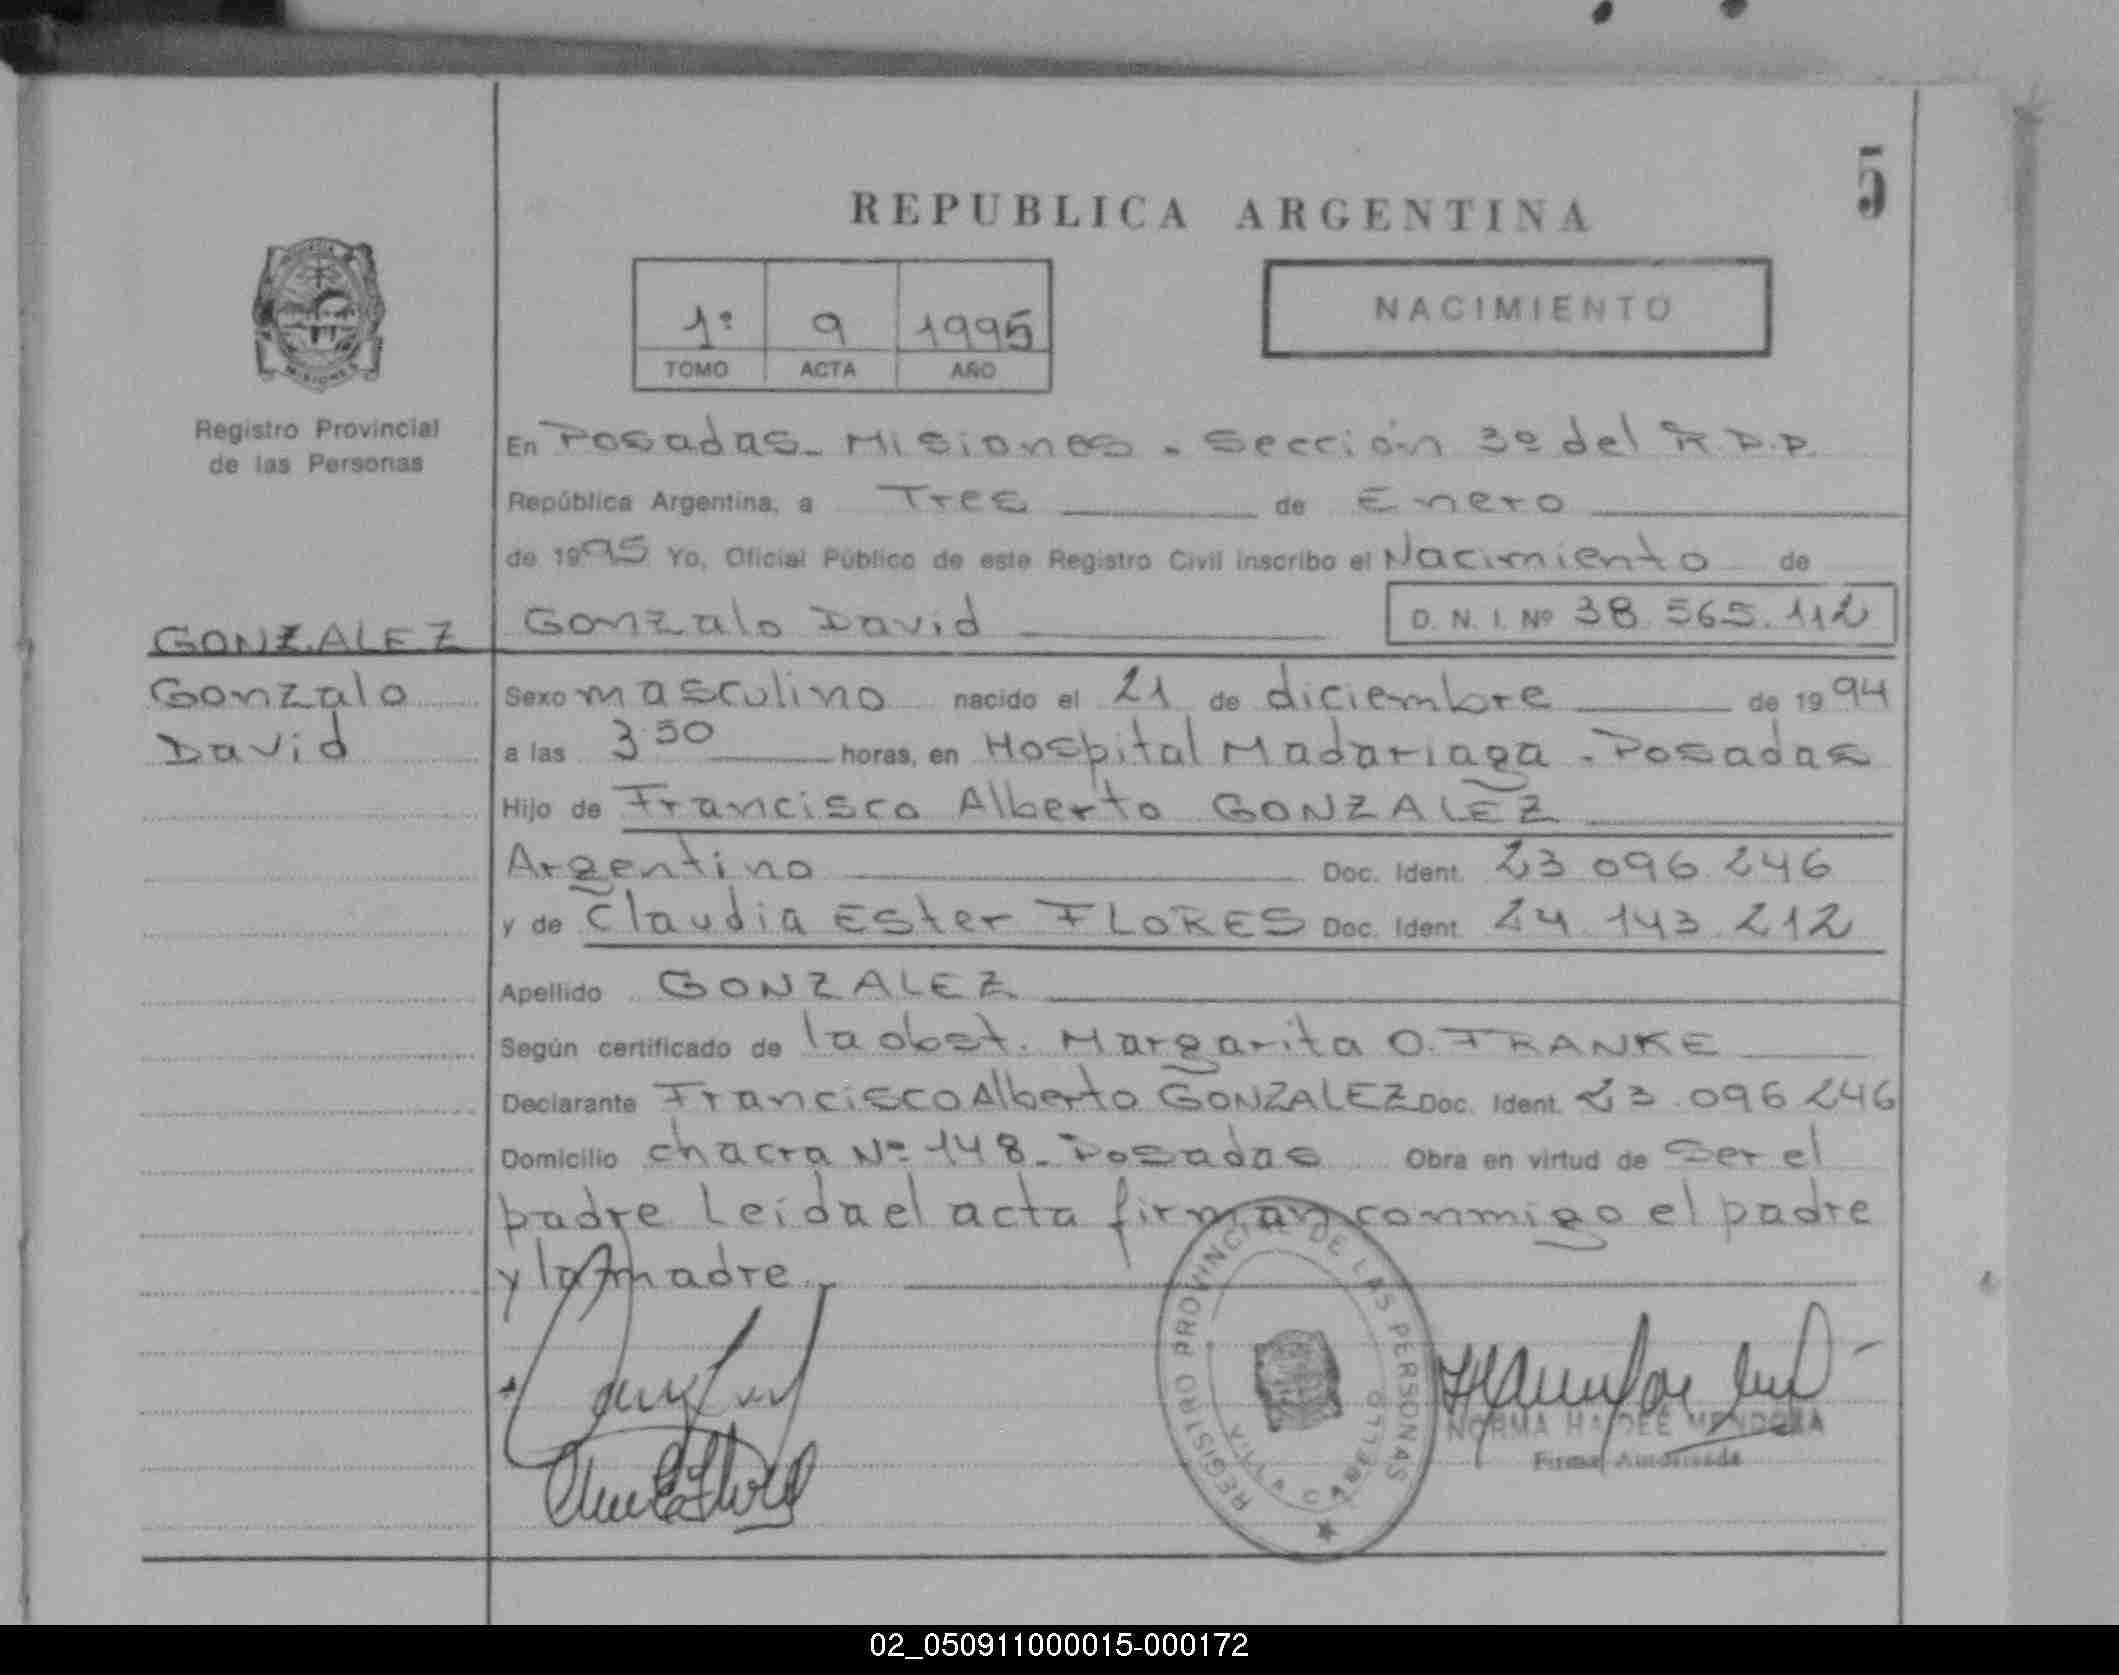 5
REPUBLICA ARGENTINA
1º 9 1995
TOMO ACTA AÑO
NACIMIENTO
MISIONES
Registro Provincial
de las Personas
En Posadas - Misiones - Sección 3º del R.P.P.
República Argentina, a Tres de Enero
de 1995 Yo, Oficial Público de este Registro Civil inscribo el Nacimiento de
Gonzalo David D. N. I. Nº 38.565.112
GONZALEZ
Gonzalo
David
Sexo masculino nacido el 21 de diciembre de 1994
a las 3.50 horas, en Hospital Madariaga - Posadas
Hijo de Francisco Alberto GONZALEZ
Argentino Doc. Ident. 23.096.246
y de Claudia Ester FLORES Doc. Ident. 24.143.212
Apellido GONZALEZ
Según certificado de la obst. Margarita O. FRANKE
Declarante Francisco Alberto GONZALEZ Doc. Ident. 23.096.246
Domicilio chacra Nº 148 - Posadas Obra en virtud de ser el
padre Leída el acta firman conmigo el padre
y la madre.
REGISTRO PROVINCIAL DE LAS PERSONAS
VILLA CABELLO
NORMA HAIDEE MENDOZA
Firma Autorizada
02_050911000015-000172